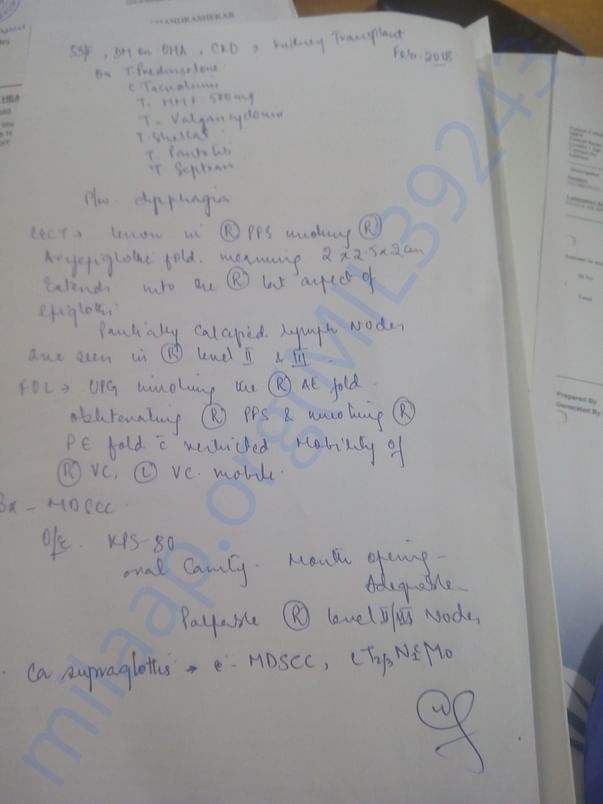 CHANDRASHEKAR
55/F, DM on OHA, CKD → Kidney Transplant
Feb. 2018
On T. Prednisolone
C. Tacrolimus
T. MMF 500mg
T. Valgancyclovir
T. Shelcal
T. Septran
P/w dysphagia
CECT → lesion in Ⓡ PFS involving Ⓡ
Aryepiglottic fold. measuring 2 x 2.5 x 2 cm
Extends into the Ⓡ lat aspect of
epiglottis
Partially calcified lymph nodes
are seen in Ⓡ level II & III.
FOL → UPG involving the Ⓡ AE fold
obliterating Ⓡ PFS & involving Ⓡ
PE fold c̄ restricted mobility of
Ⓡ VC, Ⓛ VC mobile.
Bx - MDSCC
O/E. KPS-80
oral cavity - Mouth opening -
Adequate
Palpable Ⓡ level II/III Nodes
Ca supraglottis → MDSCC, cT2/3 M0
milaap.org/MIL392437
Prepared By
Generated By